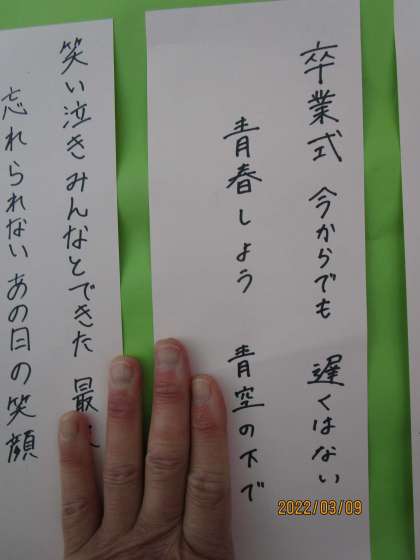 卒業式 今からでも 遅くはない
青春しよう 青空の下で
笑い泣き みんなとできた 最
忘れられない あの日の笑顔
2022/03/09